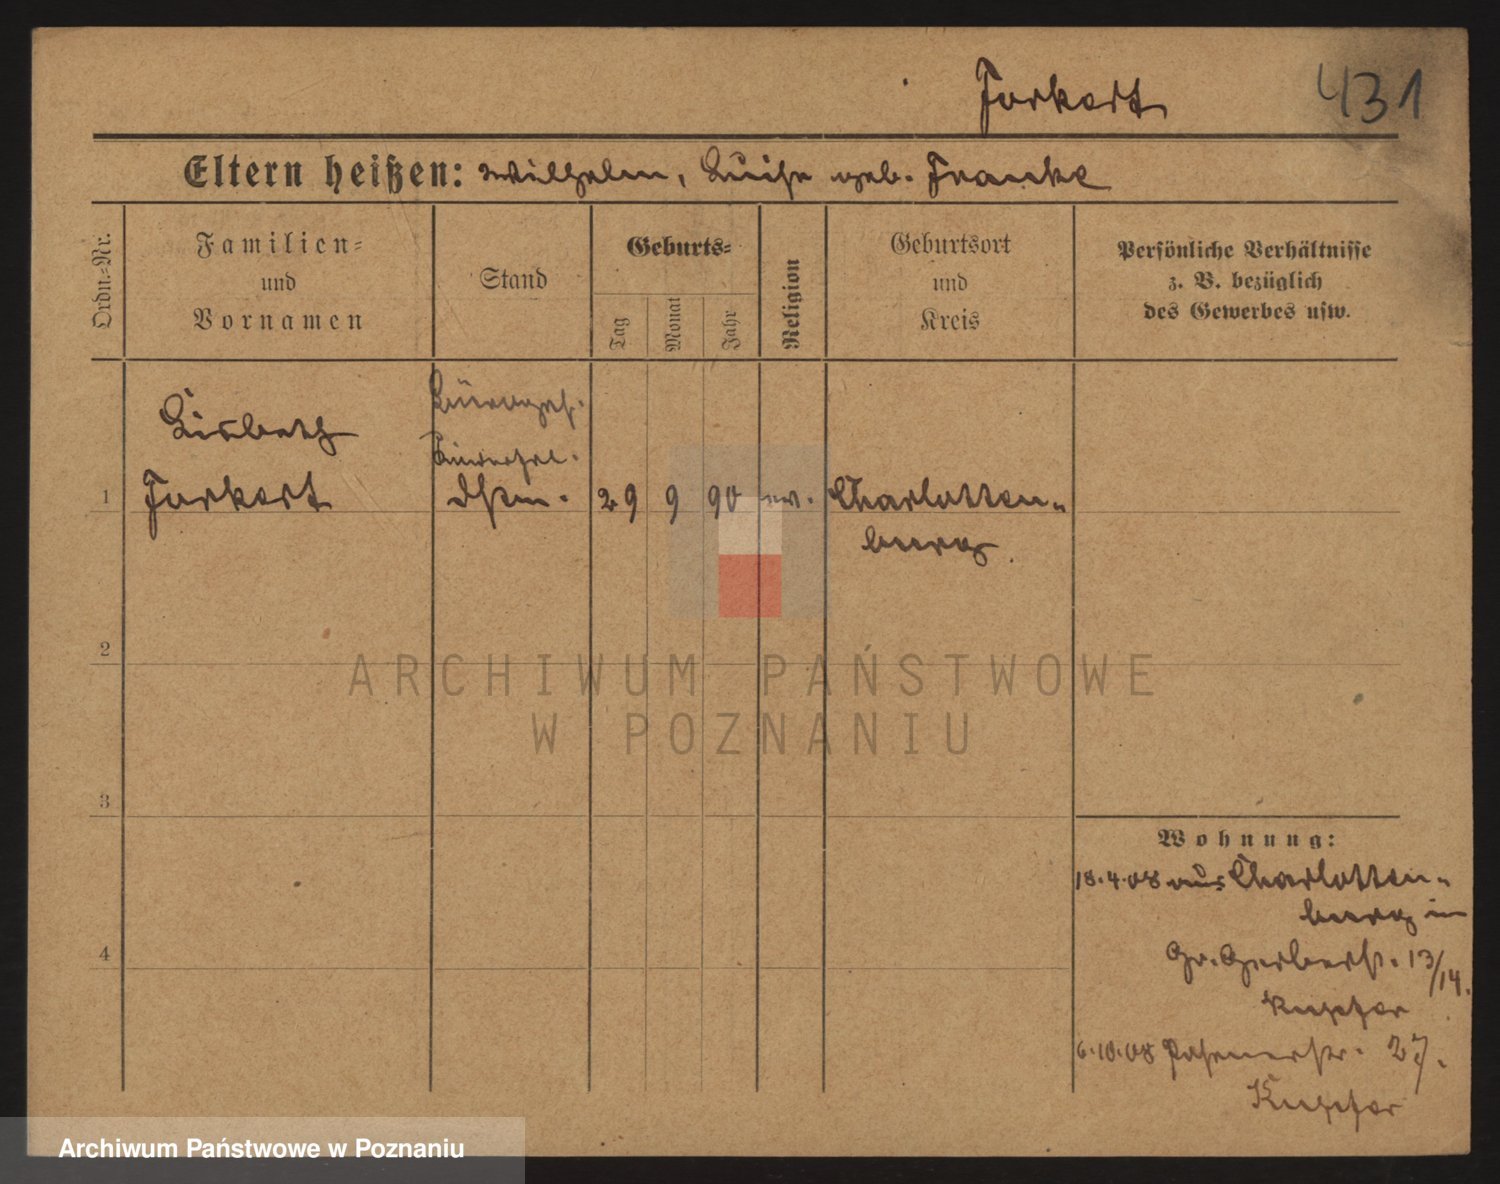 Forkert 431
Eltern heißen: Wilhelm, Luise geb. Franke
Ordn.-Nr.
Familien-
und
Vornamen
Stand
Geburts-
Tag
Monat
Jahr
Religion
Geburtsort
und
Kreis
Persönliche Verhältnisse
z. B. bezüglich
des Gewerbes usw.
Lisbeth
1 Forkert 29 9 90 ev. Charlotten-
burg.
2
ARCHIWUM PAŃSTWOWE
W POZNANIU
3
Wohnung:
18.4.08 aus Charlotten-
burg in
4
Gr. Gerberst. 13/14.
Kupfer
6.10.08 Posenerstr. 27.
Kupfer
Archiwum Państwowe w Poznaniu